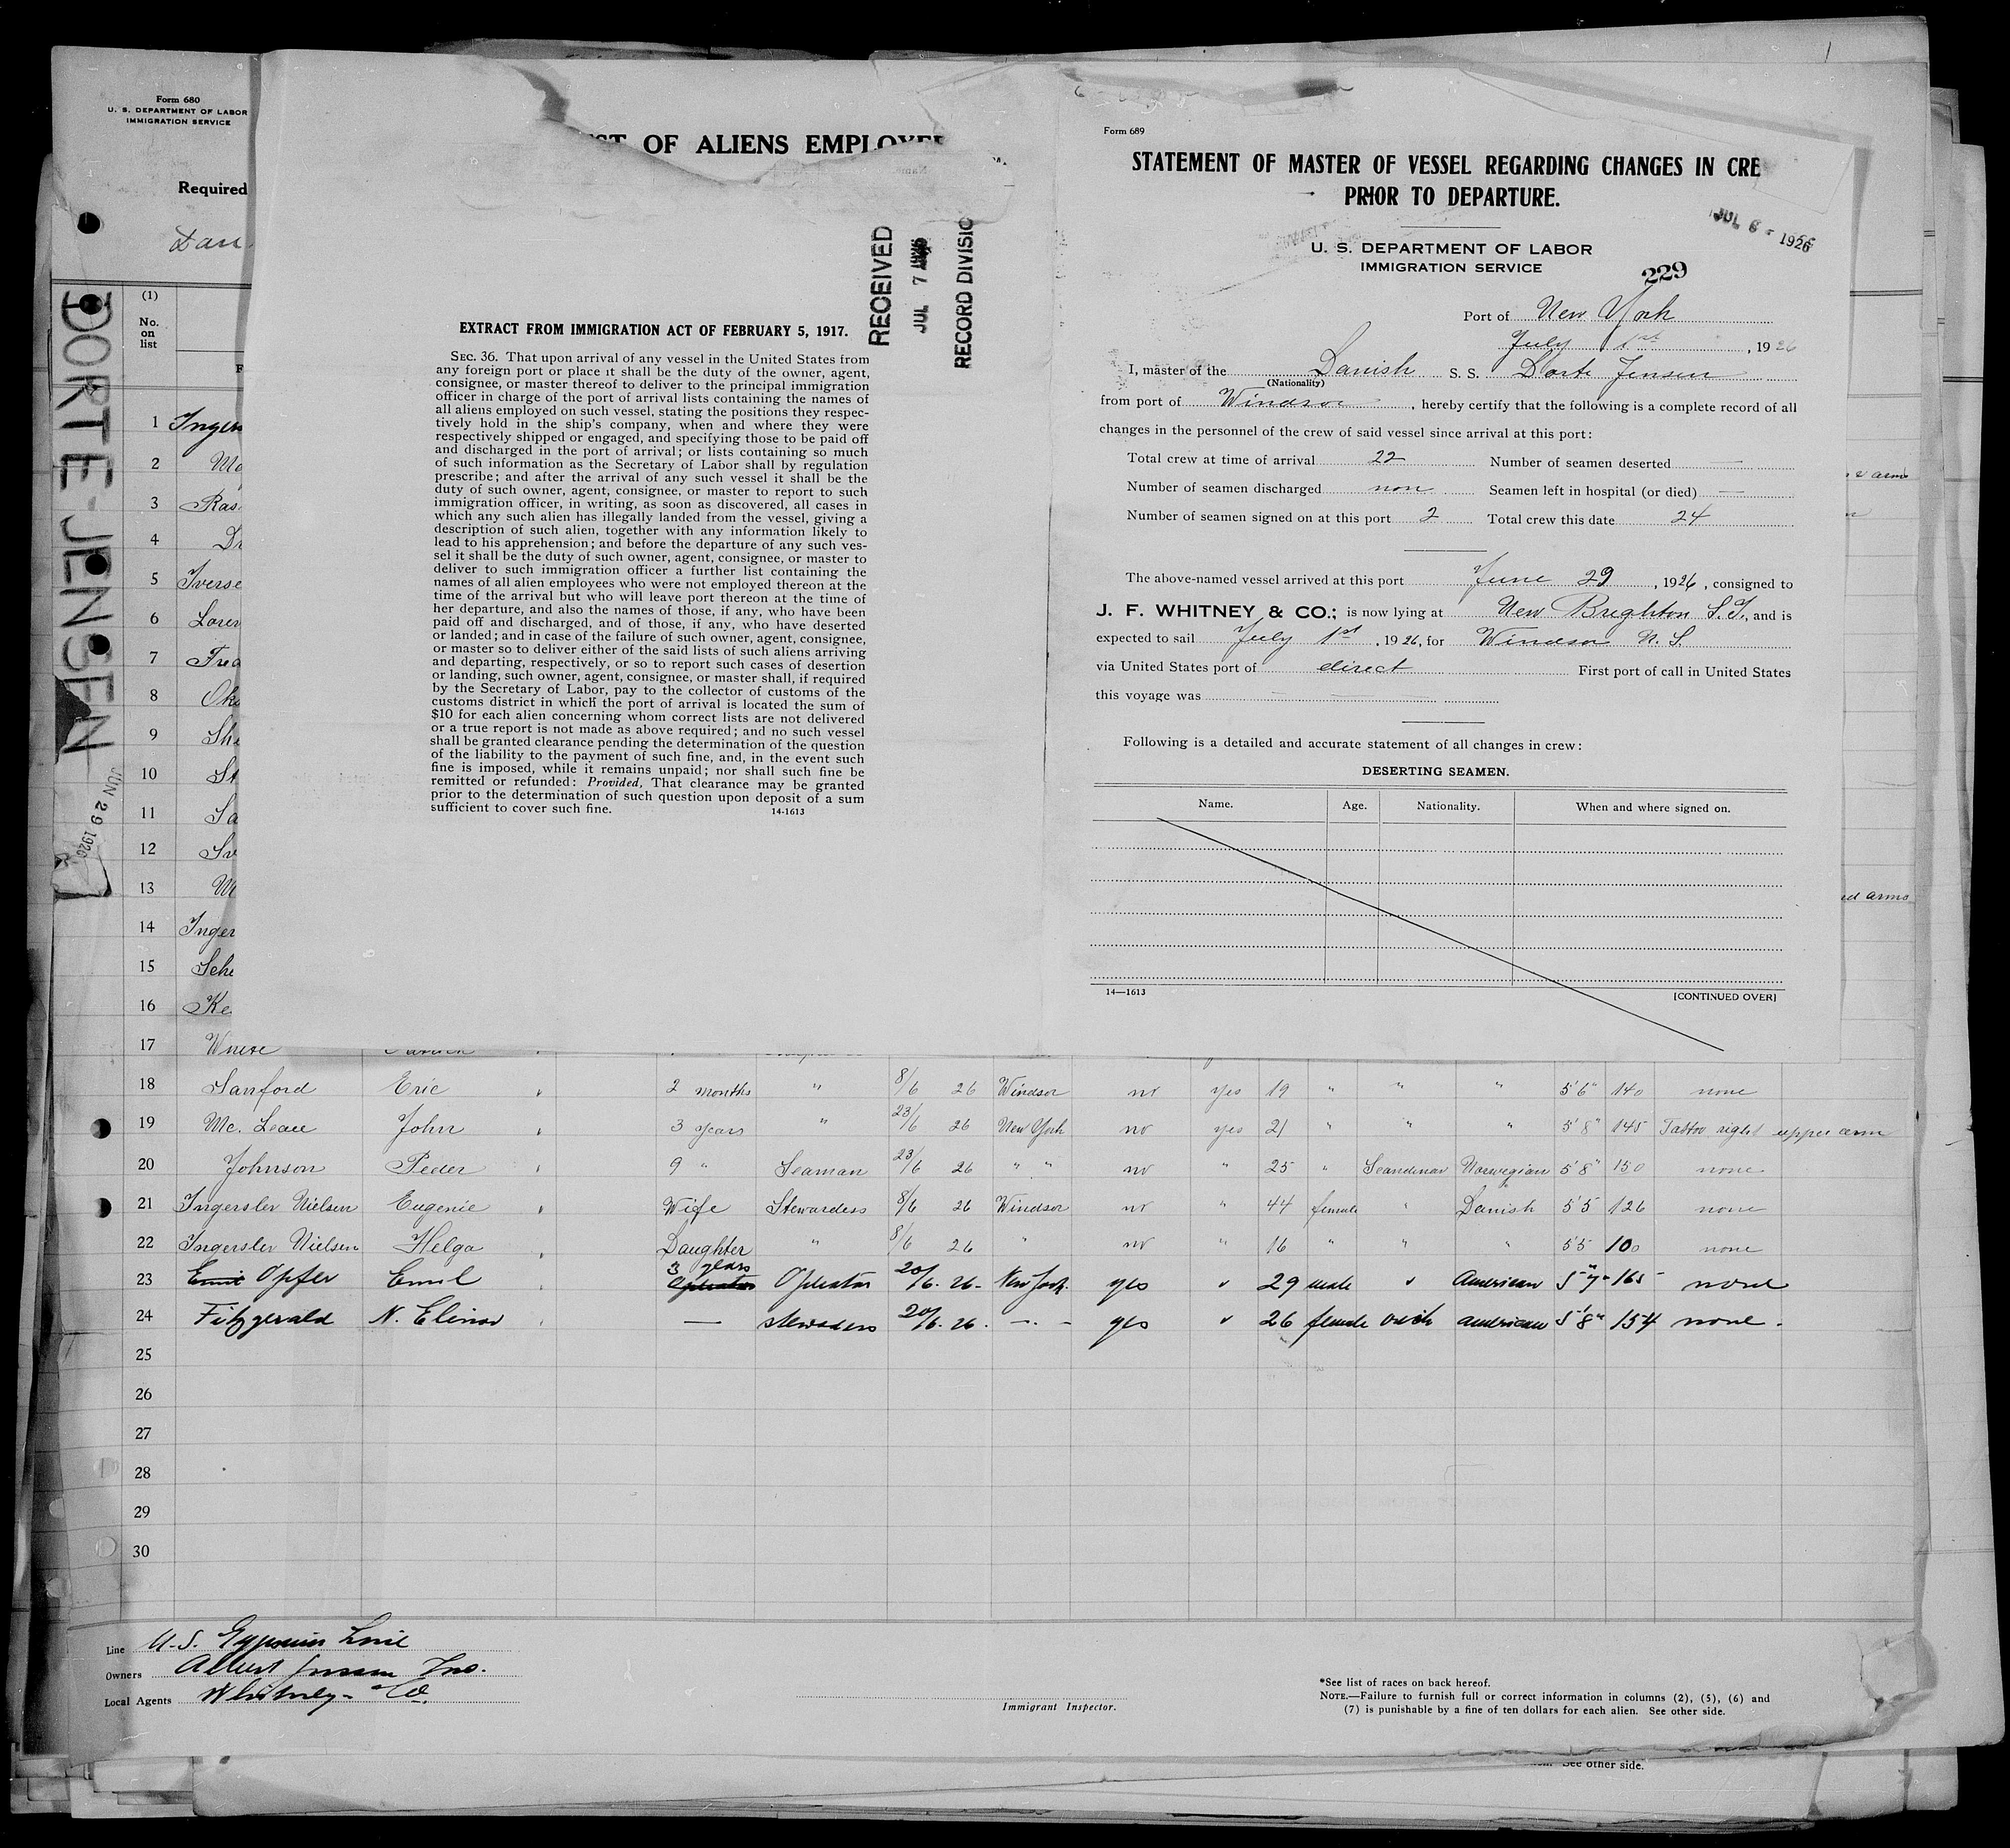 Form 680
U. S. DEPARTMENT OF LABOR
IMMIGRATION SERVICE
Required
Dan
DORTE JENSEN
JUN 29 1926
OF ALIENS EMPLOYE
RECEIVED
JUL 7
RECORD DIVISIO
EXTRACT FROM IMMIGRATION ACT OF FEBRUARY 5, 1917.
SEC. 36. That upon arrival of any vessel in the United States from
any foreign port or place it shall be the duty of the owner, agent,
consignee, or master thereof to deliver to the principal immigration
officer in charge of the port of arrival lists containing the names of
all aliens employed on such vessel, stating the positions they respec-
tively hold in the ship's company, when and where they were
respectively shipped or engaged, and specifying those to be paid off
and discharged in the port of arrival; or lists containing so much
of such information as the Secretary of Labor shall by regulation
prescribe; and after the arrival of any such vessel it shall be the
duty of such owner, agent, consignee, or master to report to such
immigration officer, in writing, as soon as discovered, all cases in
which any such alien has illegally landed from the vessel, giving a
description of such alien, together with any information likely to
lead to his apprehension; and before the departure of any such ves-
sel it shall be the duty of such owner, agent, consignee, or master to
deliver to such immigration officer a further list containing the
names of all alien employees who were not employed thereon at the
time of the arrival but who will leave port thereon at the time of
her departure, and also the names of those, if any, who have been
paid off and discharged, and of those, if any, who have deserted
or landed; and in case of the failure of such owner, agent, consignee,
or master so to deliver either of the said lists of such aliens arriving
and departing, respectively, or so to report such cases of desertion
or landing, such owner, agent, consignee, or master shall, if required
by the Secretary of Labor, pay to the collector of customs of the
customs district in which the port of arrival is located the sum of
$10 for each alien concerning whom correct lists are not delivered
or a true report is not made as above required; and no such vessel
shall be granted clearance pending the determination of the question
of the liability to the payment of such fine, and, in the event such
fine is imposed, while it remains unpaid; nor shall such fine be
remitted or refunded: Provided, That clearance may be granted
prior to the determination of such question upon deposit of a sum
sufficient to cover such fine. 14-1613
Form 689
STATEMENT OF MASTER OF VESSEL REGARDING CHANGES IN CRE
PRIOR TO DEPARTURE.
JUL 6 - 1926
U. S. DEPARTMENT OF LABOR
IMMIGRATION SERVICE
229
Port of New York
July 1st, 1926
I, master of the Danish S. S. Dorte Jensen
(Nationality)
from port of Windsor, hereby certify that the following is a complete record of all
changes in the personnel of the crew of said vessel since arrival at this port:
Total crew at time of arrival 22 Number of seamen deserted —
Number of seamen discharged non Seamen left in hospital (or died) —
Number of seamen signed on at this port 2 Total crew this date 24
The above-named vessel arrived at this port June 29, 1926, consigned to
J. F. WHITNEY & CO.; is now lying at New Brighton S.I., and is
expected to sail July 1st, 1926, for Windsor N. S.
via United States port of direct First port of call in United States
this voyage was
Following is a detailed and accurate statement of all changes in crew:
DESERTING SEAMEN.
Name. Age. Nationality. When and where signed on.
14—1613 [CONTINUED OVER]
(1)
No.
on
list
1 Ingers
2 Mo
3 Ras
4 Dr
5 Iverse
6 Loren
7 Fred
8 Ok
9 Sh
10 St
11 Sa
12 Sv
13 M
14 Inger
15 Sche
16 Ke
17
18 Sanford Eric " 2 months " 8/6 26 Windsor no yes 19 " " " 5'6" 140 none
19 Mc. Lean John " 3 years " 23/6 26 New York no yes 21 " " " 5'8" 145 Tattoo right upper arm
20 Johnson Peder " 9 " Seaman 23/6 26 " " no " 25 " Scandinav Norwegian 5'8" 150 none
21 Ingerslev Nielsen Eugenie " Wife Stewardess 8/6 26 Windsor no " 44 female " Danish 5'5 126 none
22 Ingerslev Nielsen Helga " Daughter " 8/6 26 " no " 16 " " " 5'5 100 none
23 Emil Opfer Emil 3 years Operator Operator 20/6. 26 - New York. yes " 29 male " American 5"7" 165 none
24 Fitzgerald N. Elinor — stewardess 20/6. 26. -. - yes " 26 female american 5'8" 154 none.
25
26
27
28
29
30
Line U.S. Gypsum Line
Owners Albert Jensen Inc.
Local Agents Whitney - Co.
Immigrant Inspector.
*See list of races on back hereof.
NOTE.—Failure to furnish full or correct information in columns (2), (5), (6) and
(7) is punishable by a fine of ten dollars for each alien. See other side.
See other side.